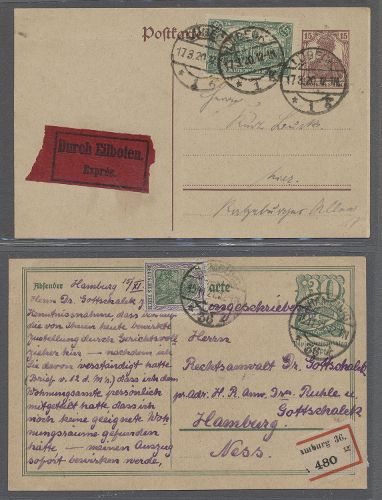 Postkarte
15
LÜBECK
17.3.20. 12-1N.
* 1 *
LÜBECK
17.3.20. 12-1N.
* 1 *
Durch Eilboten.
Exprès.
Herrn
Kurt
hier.
Ratzeburger Allee
Absender
Hamburg 15/XI
Karte
30
Herrn Dr. Gottschalck!
Kenntnisnahme, dass
die von Ihnen heute bewirkte
Zustellung durch Gerichtsvoll
zieher hier – nachdem ich
Sie davon verständigt hatte
Brief v. 12 d. Mn.) dass ich dem
Wohnungsamte persönlich
mitgeteilt hatte dass ich
noch keine geeignete Wohnungs
räume gefunden
hätte – meinen Auszug
sofort bewirken werde,
Eingeschrieben
Herrn
Rechtsanwalt Dr. Gottschalck
pr. Adr. H. R. Anw. Dr. Ruhle u.
Gottschalck
Hamburg
Ness.
amburg 36,
480